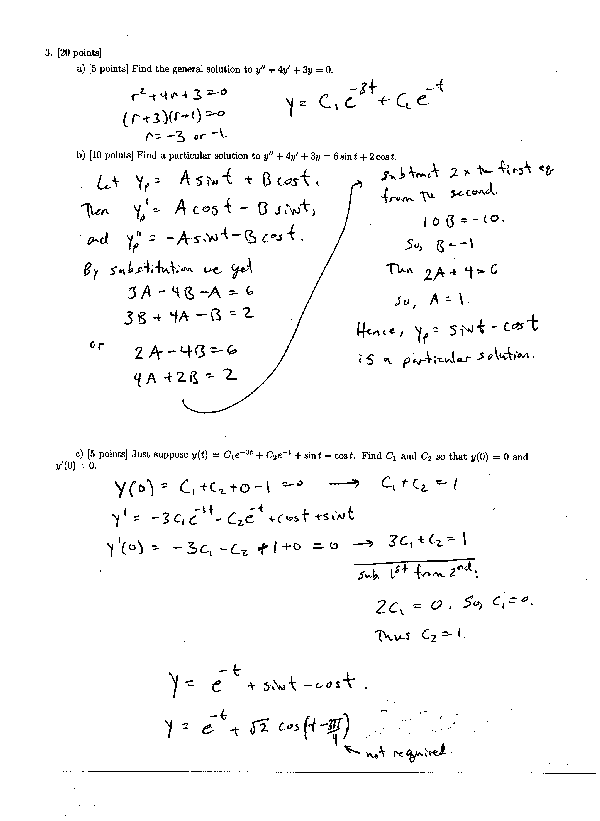 3. [20 points]
a) [5 points] Find the general solution to y″ + 4y′ + 3y = 0.
r² + 4r + 3 = 0
(r + 3)(r + 1) = 0
r = -3 or -1.
y = C₁e^{-3t} + C₂e^{-t}
b) [10 points] Find a particular solution to y″ + 4y′ + 3y = 6 sin t + 2 cos t.
Let yₚ = A sin t + B cos t.
Then yₚ′ = A cos t - B sin t,
and yₚ″ = -A sin t - B cos t.
By substitution we get
3A - 4B - A = 6
3B + 4A - B = 2
or
2A - 4B = 6
4A + 2B = 2
subtract 2 x the first eq
from the second.
10B = -10.
So, B = -1
Then 2A + 4 = 6
so, A = 1.
Hence, yₚ = sin t - cos t
is a particular solution.
c) [5 points] Just suppose y(t) = C₁e^{-3t} + C₂e^{-t} + sin t - cos t. Find C₁ and C₂ so that y(0) = 0 and
y′(0) = 0.
y(0) = C₁ + C₂ + 0 - 1 = 0 → C₁ + C₂ = 1
y′ = -3C₁e^{-3t} - C₂e^{-t} + cos t + sin t
y′(0) = -3C₁ - C₂ + 1 + 0 = 0 → 3C₁ + C₂ = 1
Sub 1st from 2nd:
2C₁ = 0. So, C₁ = 0.
Thus C₂ = 1.
y = e^{-t} + sin t - cos t.
y = e^{-t} + √2 cos(t - 3π/4)
← not required.